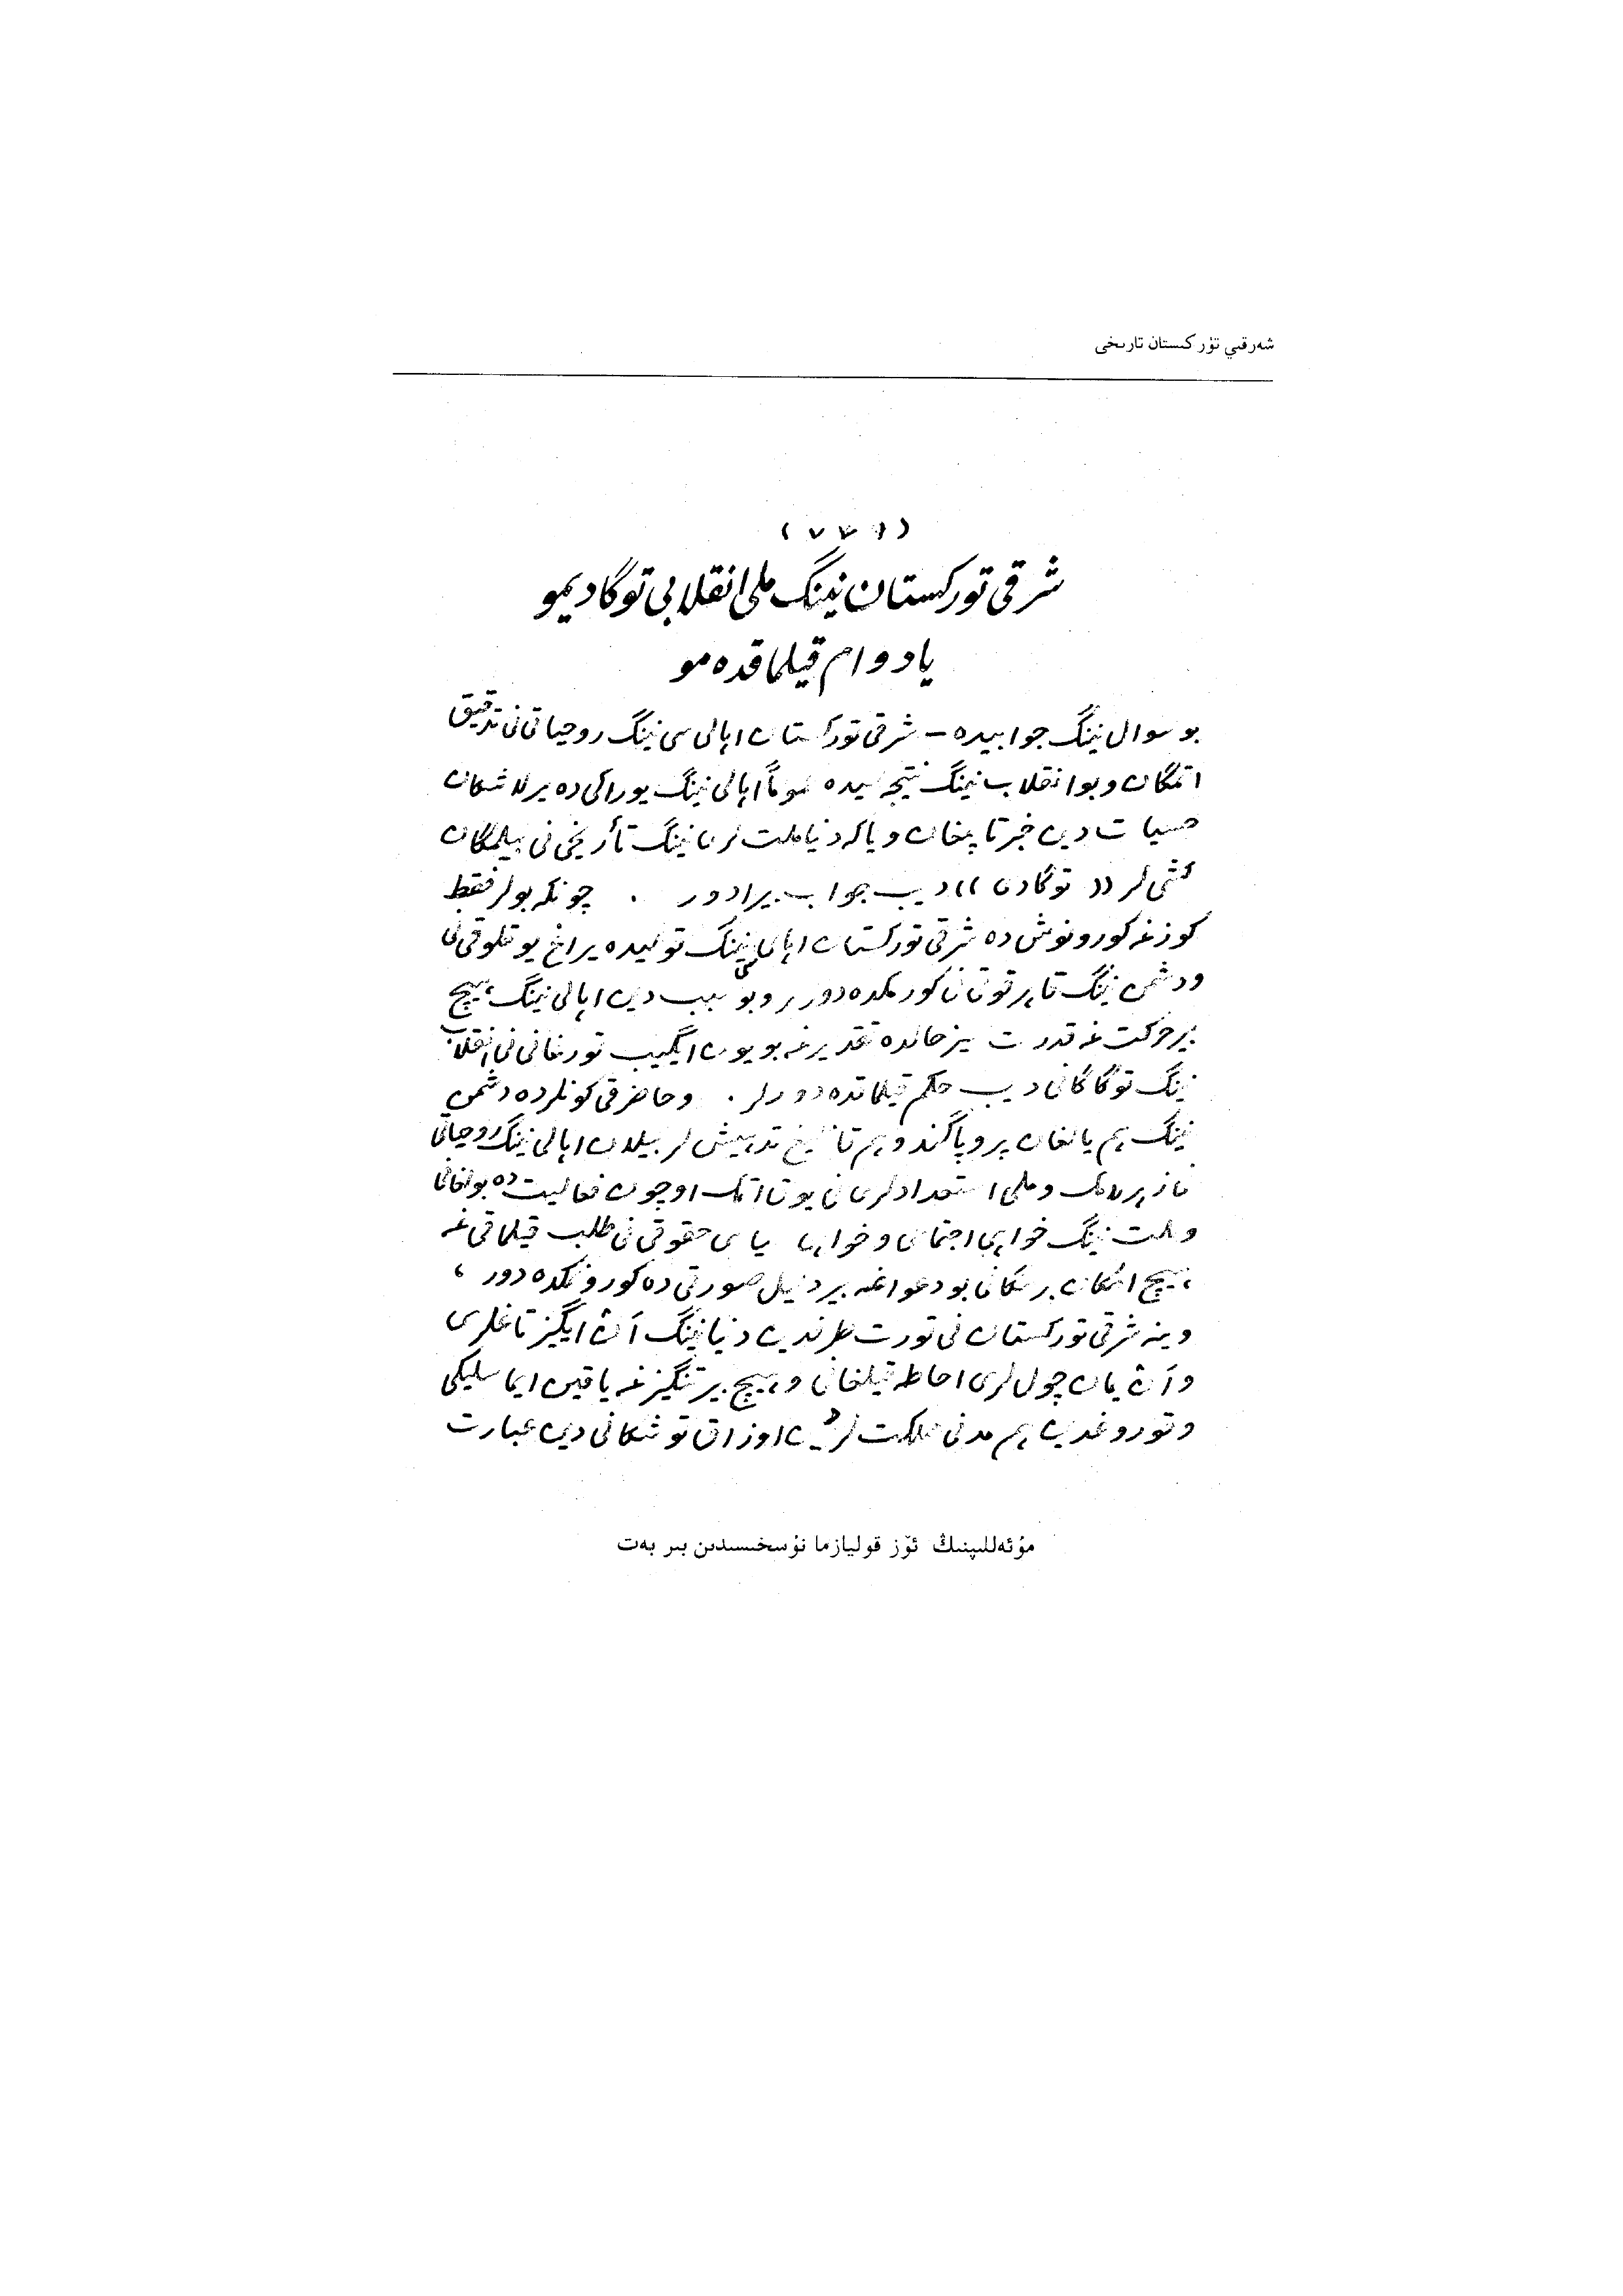 شەرقىي تۈركىستان تارىخى
(٧٧١)
شرقی تورکستان نینگ ملی انقلابی توگادیمو
یا دوام قیلماقده مو
بو سوال نینگ جوابیده – شرقی تورکستان اهالی سی نینگ روحیاتی نی تدقیق
اتمگان و بو انقلاب نینگ نتیجه سیده عموماً اهالی نینگ یوراکی ده یرلاشکان
حسیات دین خبر تاپمغان و یا که دنیا ملت لری نینگ تأریخی نی بیلمگان
کشی لر (( توگادی )) دیب جواب بیرادور . چونکه بولر فقط
کوزغه کورونوش ده شرقی تورکستان اهالی سی نینگ قولیده یراغ یوقلوقی نی
و دشمن نینگ قاهر قوتی نی کورمکده دورلر و بو سبب دین اهالی نینگ هیچ
بیر حرکت غه قدرت سیز حالده تقدیرغه بویون ایگیب تورغانی نی انقلاب
نینگ توگاگانی دیب حکم قیلماقده دورلر . و حاضرقی کونلرده دشمن
نینگ هم یالغان پروپاگند و هم قانلیغ تدهیش لر بیلان اهالی نینگ روحیاتی
و ملی استعدادلری نی یوق اتمک اوچون فعالیت ده بولغانی
و ملت نینگ خواهی اجتماعی و خواهی سیاسی حقوقی نی طلب قیلماقی غه
هیچ امکان برمگانی بو دعواغه بیر دلیل صورتی ده کورونمکده دور ،
و ینه شرقی تورکستان نی تورت طرفدین دنیا نینگ اڭ ایگیز تاغلری
و اڭ یمان چول لری احاطه قیلغانی و هیچ بیر تنگیزغه یاقین ایماسلیکی
و توروغدین هم مدنی مملکت لردین اوزاق توشکانی دین عبارت
مۇئەللىپنىڭ ئۆز قوليازما نۇسخىسىدىن بىر بەت